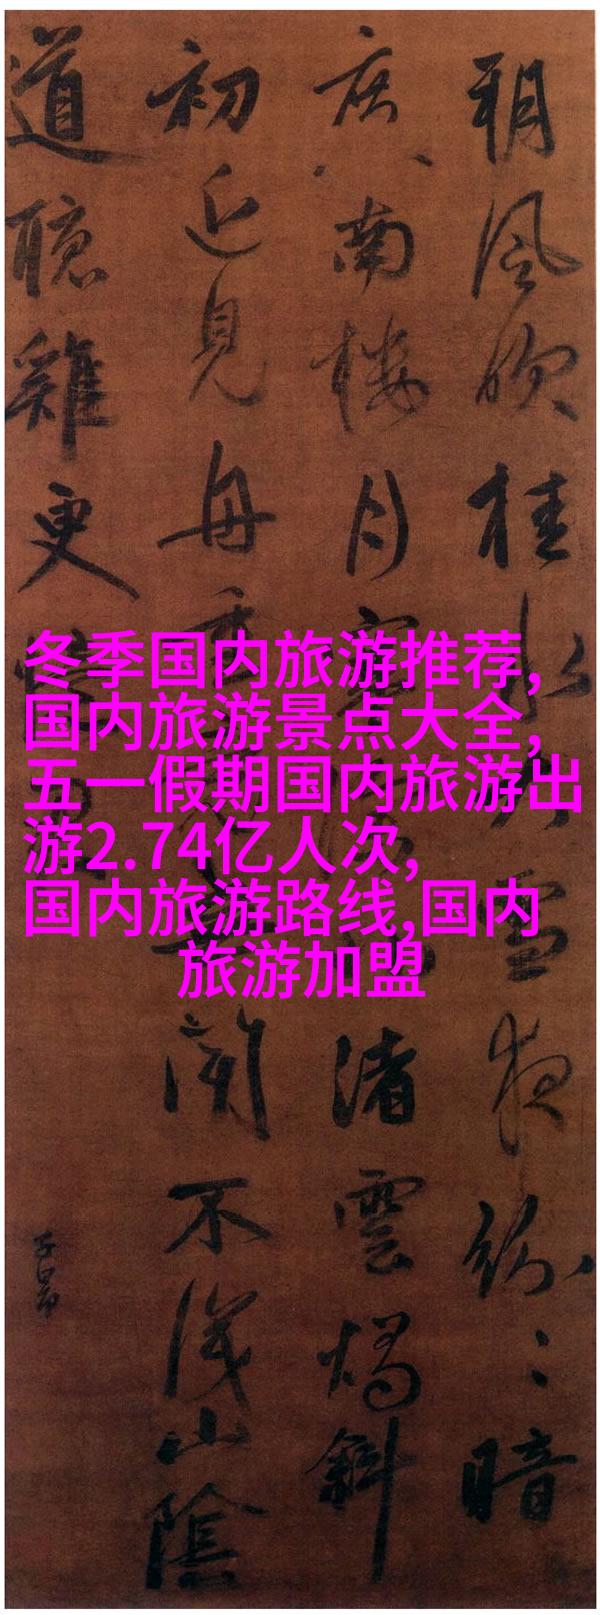 朔風吹桂水大雪夜紛〻暗
度南樓月寒渚雲燭斜
初近見舟重聞不識山陰
道聽雞更
子昂
冬季国内旅游推荐,
国内旅游景点大全,
五一假期国内旅游出
游2.74亿人次,
国内旅游路线,国内
旅游加盟